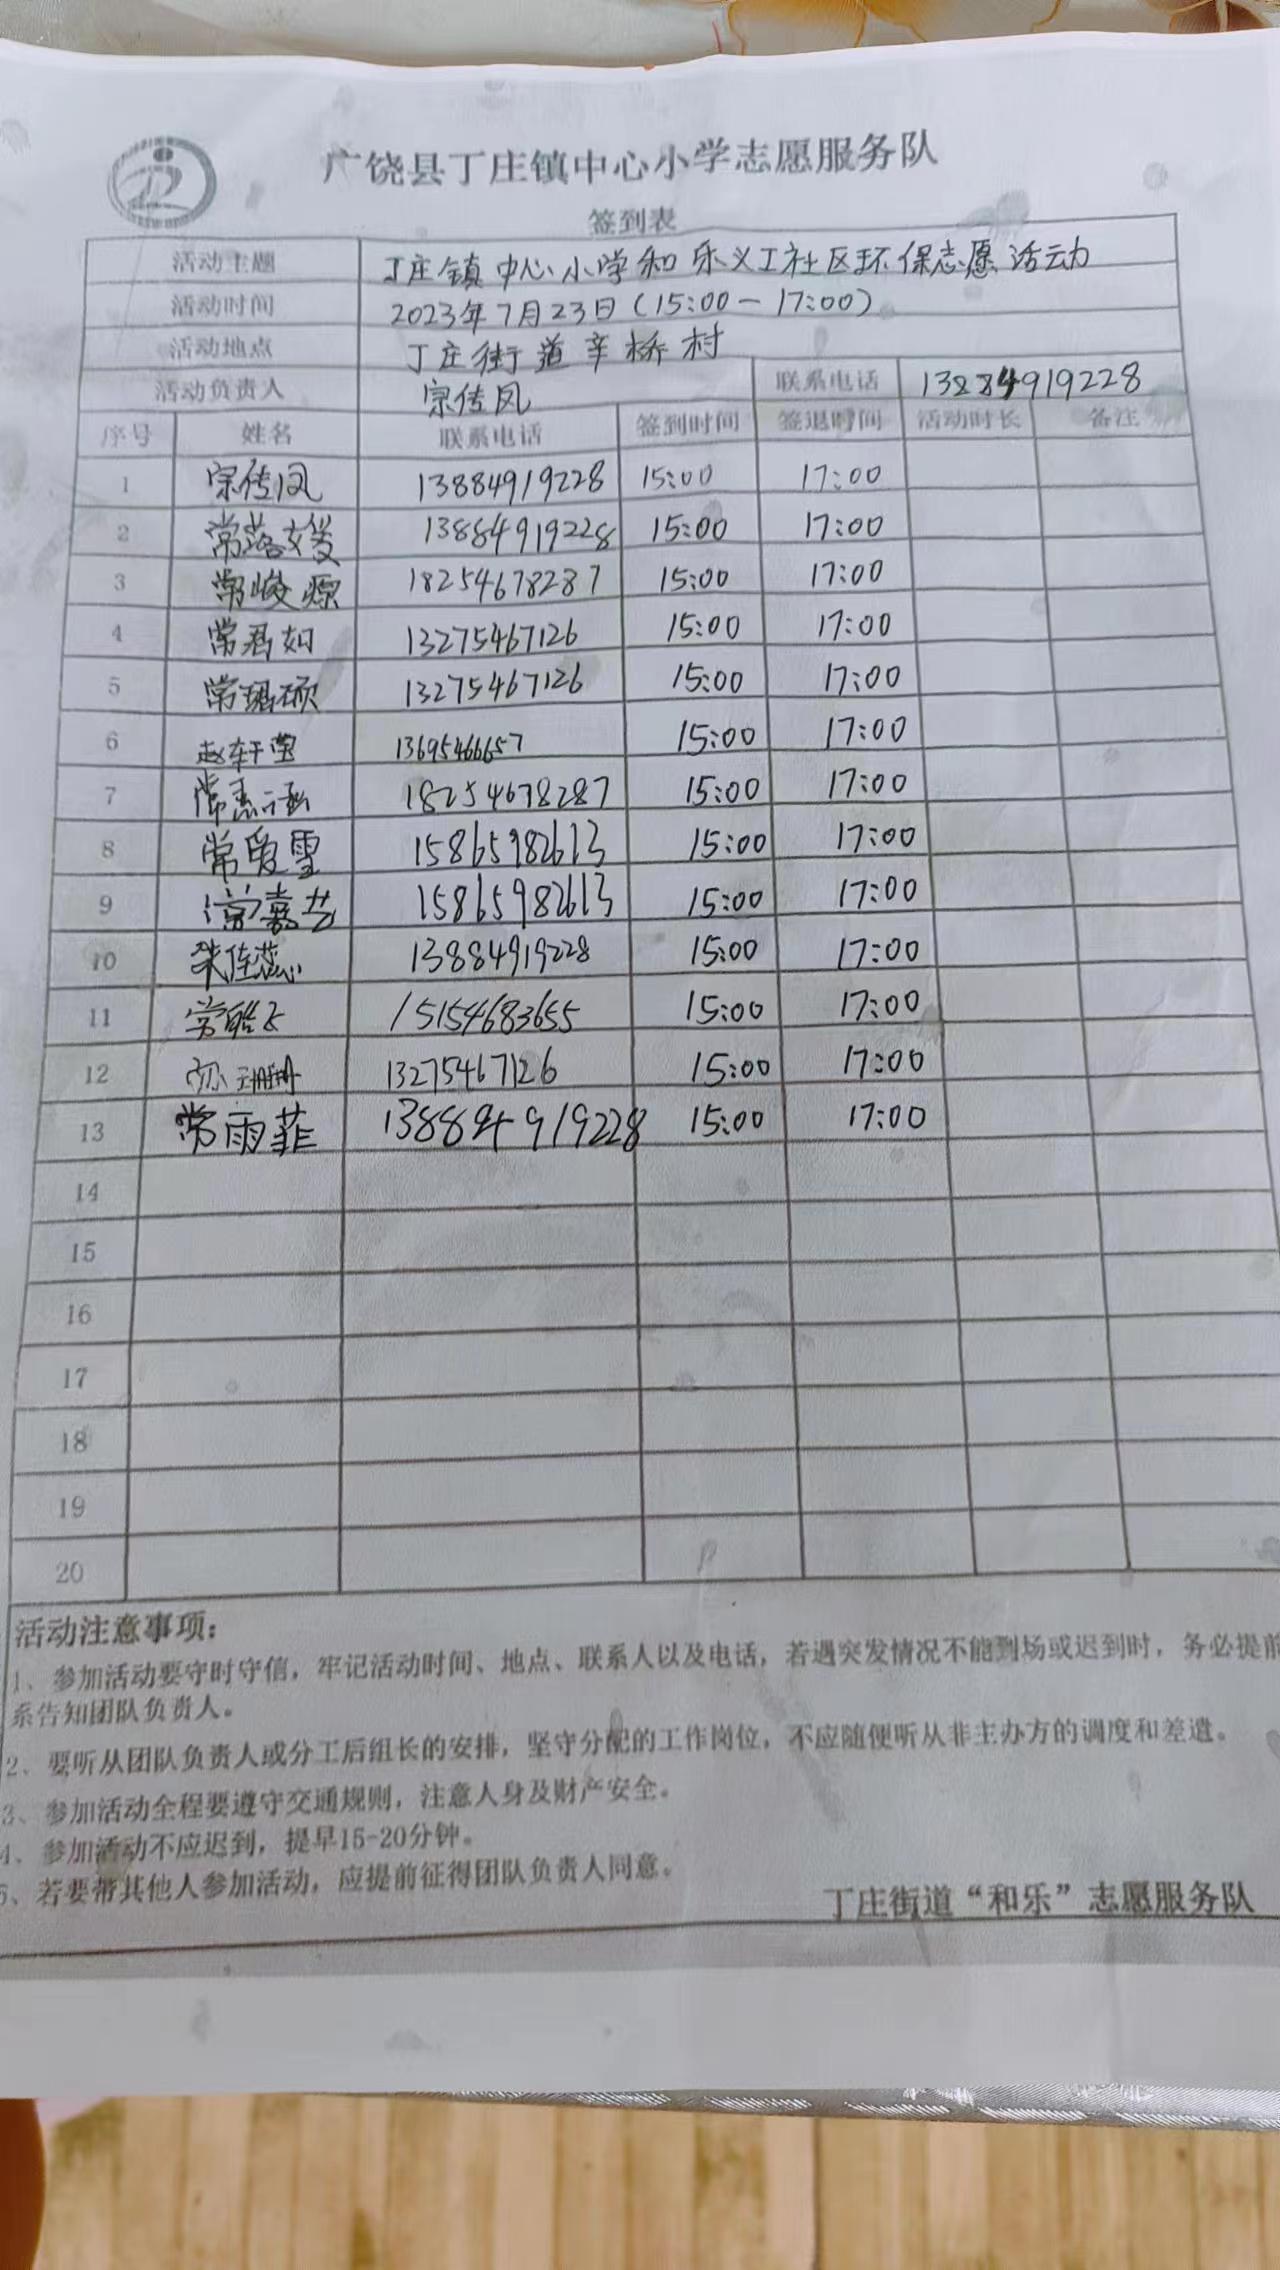 广饶县丁庄镇中心小学志愿服务队
签到表
活动主题 丁庄镇中心小学和乐义工社区环保志愿活动
活动时间 2023年7月23日(15:00-17:00)
活动地点 丁庄街道辛桥村
活动负责人 宗传凤 联系电话 13884919228
序号 姓名 联系电话 签到时间 签退时间 活动时长 备注
1 宗传凤 13884919228 15:00 17:00
2 常落文 13884919228 15:00 17:00
3 常峻源 18254678287 15:00 17:00
4 常君如 13275467126 15:00 17:00
5 常硕 13275467126 15:00 17:00
6 赵轩莹 13695466657 15:00 17:00
7 常惠涵 18254678287 15:00 17:00
8 常爱雪 15865982613 15:00 17:00
9 常嘉艺 15865982613 15:00 17:00
10 佳蕊 13884919228 15:00 17:00
11 常 15154683655 15:00 17:00
12 珊珊 13275467126 15:00 17:00
13 常雨菲 13884919228 15:00 17:00
14
15
16
17
18
19
20
活动注意事项:
1、参加活动要守时守信，牢记活动时间、地点、联系人以及电话，若遇突发情况不能到场或迟到时，务必提前
系告知团队负责人。
2、要听从团队负责人或分工后组长的安排，坚守分配的工作岗位，不应随便听从非主办方的调度和差遣。
3、参加活动全程要遵守交通规则，注意人身及财产安全。
4、参加活动不应迟到，提早15-20分钟。
5、若要带其他人参加活动，应提前征得团队负责人同意。
丁庄街道“和乐”志愿服务队